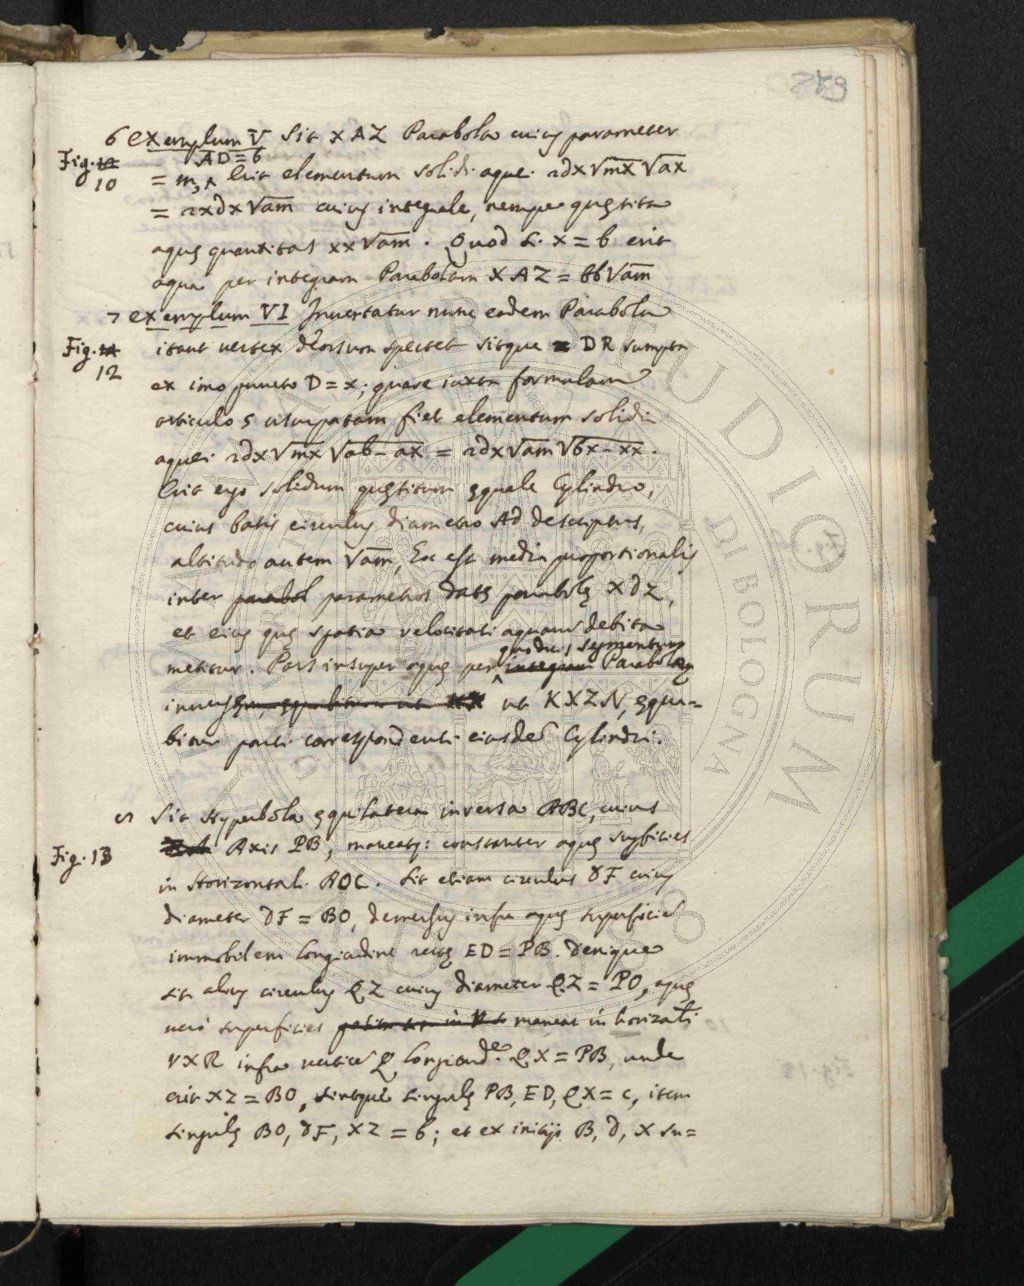 679
6 Exemplum V Sit XAZ Parabola cuius parameter
Fig. 10
AD = b
= m, Erit elementum solidi aquei 2dx√mx √ax
= 2xdx√am cuius integrale, nempe quęsita
aquę quantitas xx√am. Quod si x = b erit
aqua per integram Parabolam XAZ = bb√am
7 Exemplum VI Invertatur nunc eadem Parabola
Fig. 12
itaut vertex deorsum spectet sitque DR sumpta
ex imo puncto D = x; quare iuxta formulam
articulo 5 usurpatam fiet elementum solidi
aquei 2dx√mx √ab-ax = 2dx√am √bx-xx.
Erit ergo solidum quęsitum ęquale Cylindro,
cuius basis circulus diametro AD descriptus,
altitudo autem √am, hoc est media proportionalis
inter parabol parametros datę parabolę XDZ,
et eius quę spatia velocitati aquarum debita
metitur. Pars insuper aquę per integram Parabolam
quodvis segmentum
inversam ut KXZN, ęqua=
bitur parti correspondenti eiusdem Cylindri.
8 Sit Hyperbola ęquilatera inversa ABC, cuius
Fig. 13
Axis PB, maneatq: constanter aquę superficies
in Horizontali AOC. Sit etiam circulus DF cuius
diameter DF = BO, demersus infra aquę superficiem
immobilem longitudine rectę ED = PB. Denique
sit alius circulus QZ cuius diameter QZ = PO, aquę
vero superficies maneat in horizontali
VXR infra verticem Q longitudine QX = PB, unde
erit XZ = BO, sintque singulę PB, ED, QX = c, item
singulę BO, DF, XZ = b; et ex initijs B, D, X su=